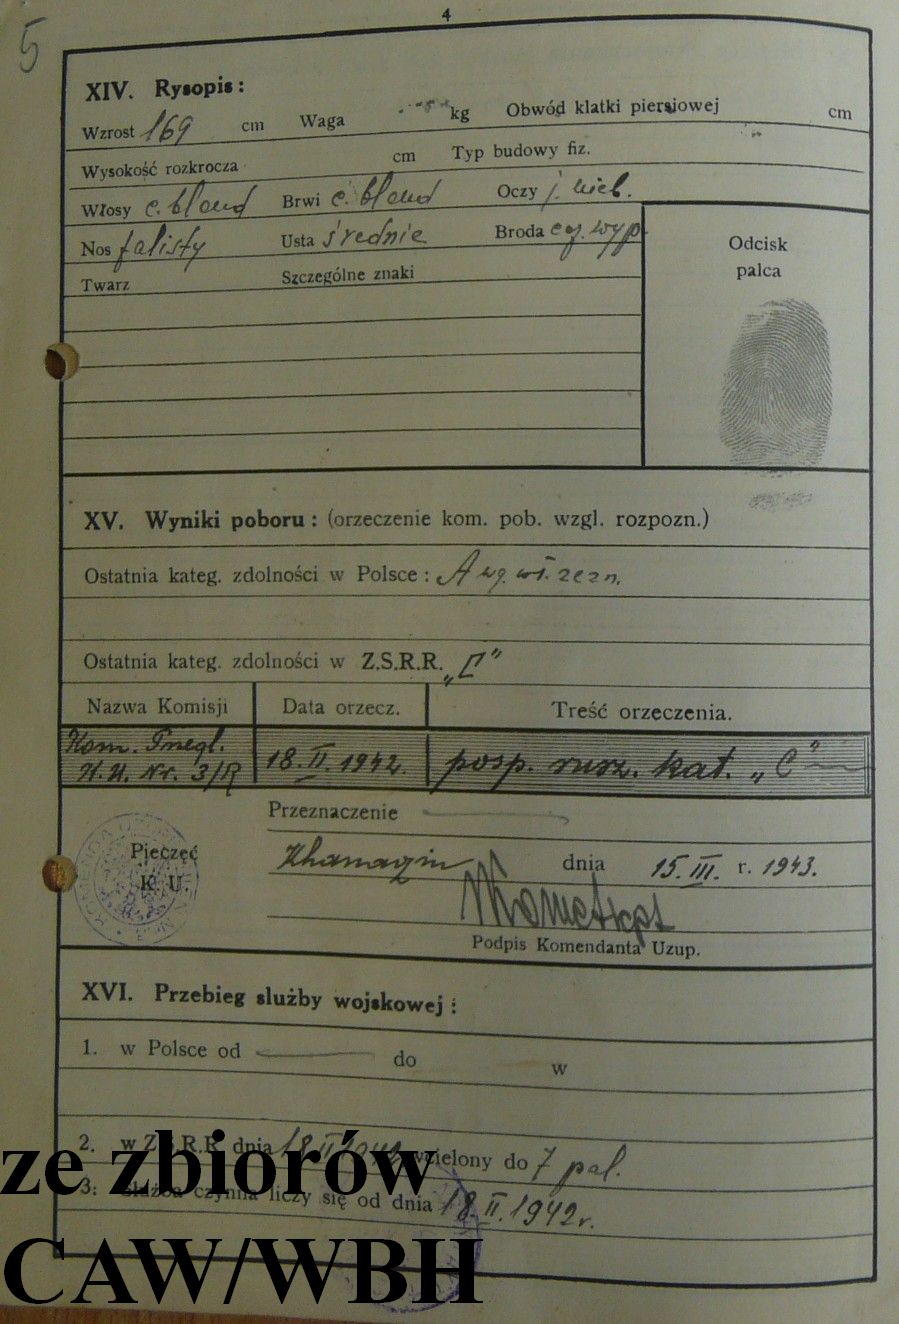 4
5
XIV. Rysopis:
Wzrost 169 cm Waga kg Obwód klatki piersiowej cm
Wysokość rozkrocza cm Typ budowy fiz.
Włosy c. blond Brwi c. blond Oczy j. nieb.
Nos falisty Usta średnie Broda wyp.
Twarz Szczególne znaki
Odcisk
palca
XV. Wyniki poboru: (orzeczenie kom. pob. wzgl. rozpozn.)
Ostatnia kateg. zdolności w Polsce: A wg. zezn.
Ostatnia kateg. zdolności w Z.S.R.R. „C"
Nazwa Komisji Data orzecz. Treść orzeczenia.
Kom. Przegl.
K.U. Nr. 3/R 18.II.1942. posp. rusz. kat. „C"
Przeznaczenie
Pieczęć
K. U.
Khanaqin dnia 15.III. r. 1943.
Podpis Komendanta Uzup.
XVI. Przebieg służby wojskowej:
1. w Polsce od do w
2. w Z.S.R.R. dnia 18.II 1942 wcielony do 7 pal.
3. Służba czynna liczy się od dnia 18.II.1942r.
ze zbiorów
CAW/WBH